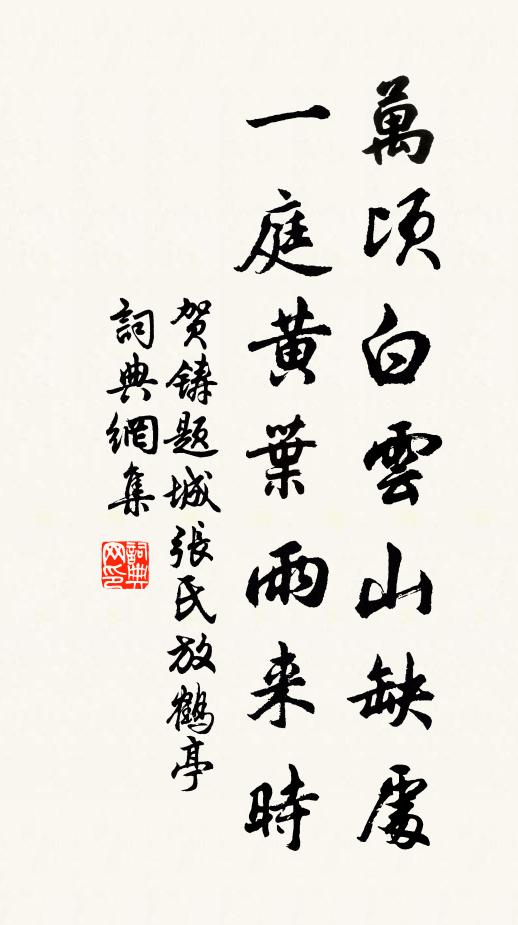 萬頃白雲山缺處
一庭黃葉雨来時
贺鋳题城張氏放鶴亭
詞典網集
詞典网印